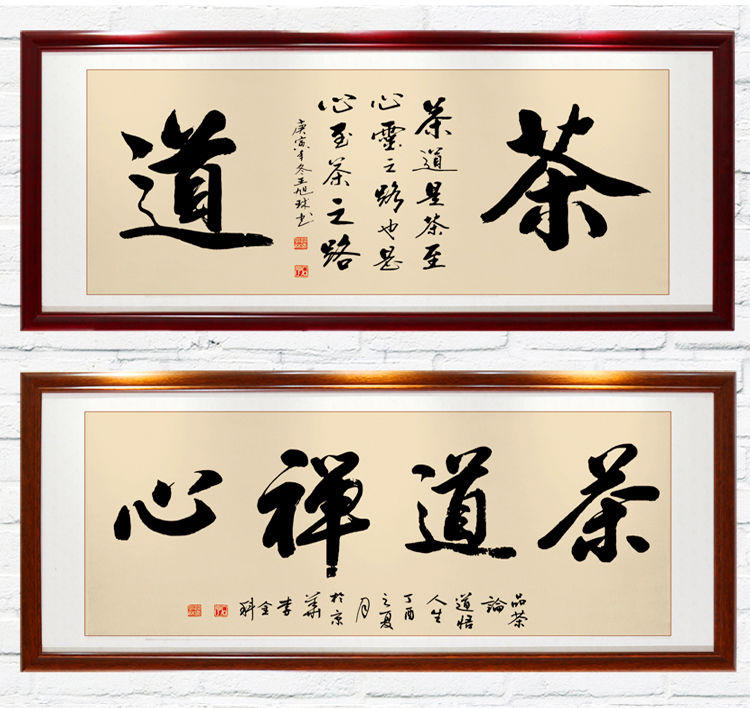 茶
茶道是茶至
心靈之路也是
心至茶之路
庚寅年冬王旭球书
道
茶道禅心
品茶
論
道悟
人生
丁酉
之夏
月
於京
華
李
金
科